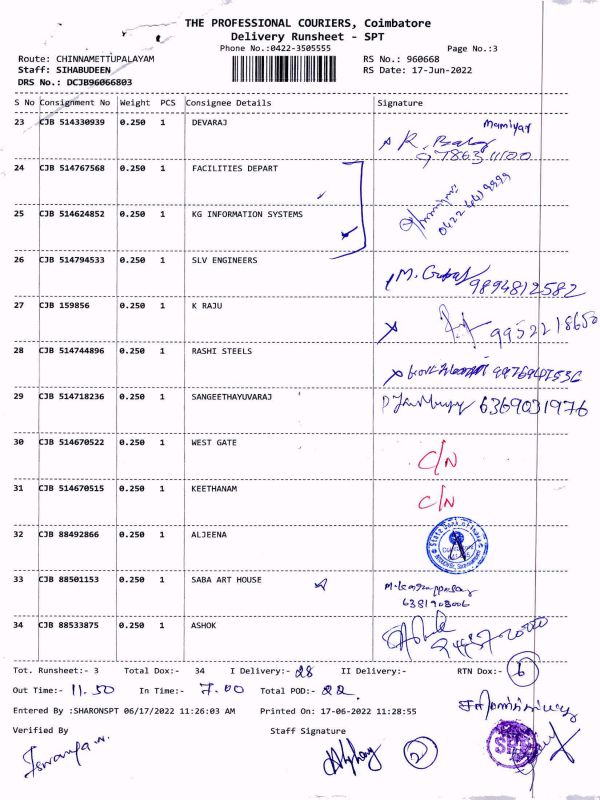 THE PROFESSIONAL COURIERS, Coimbatore
Delivery Runsheet - SPT
Phone No.:0422-3505555 Page No.:3
Route: CHINNAMETTUPALAYAM RS No.: 960668
Staff: SIHABUDEEN RS Date: 17-Jun-2022
DRS No.: DCJB96066803
S No Consignment No Weight PCS Consignee Details Signature
23 CJB 514330939 0.250 1 DEVARAJ
24 CJB 514767568 0.250 1 FACILITIES DEPART
25 CJB 514624852 0.250 1 KG INFORMATION SYSTEMS
26 CJB 514794533 0.250 1 SLV ENGINEERS
9894812582
27 CJB 159856 0.250 1 K RAJU
9952218650
28 CJB 514744896 0.250 1 RASHI STEELS
29 CJB 514718236 0.250 1 SANGEETHAYUVARAJ 6369031976
30 CJB 514670522 0.250 1 WEST GATE C/N
31 CJB 514670515 0.250 1 KEETHANAM C/N
32 CJB 88492866 0.250 1 ALJEENA State Bank of India
33 CJB 88501153 0.250 1 SABA ART HOUSE
6381903006
34 CJB 88533875 0.250 1 ASHOK
Tot. Runsheet:- 3 Total Dox:- 34 I Delivery:- 28 II Delivery:- RTN Dox:- 6
Out Time:- 11.50 In Time:- 7.00 Total POD:- 22
Entered By :SHARONSPT 06/17/2022 11:26:03 AM Printed On: 17-06-2022 11:28:55
Verified By Staff Signature
2